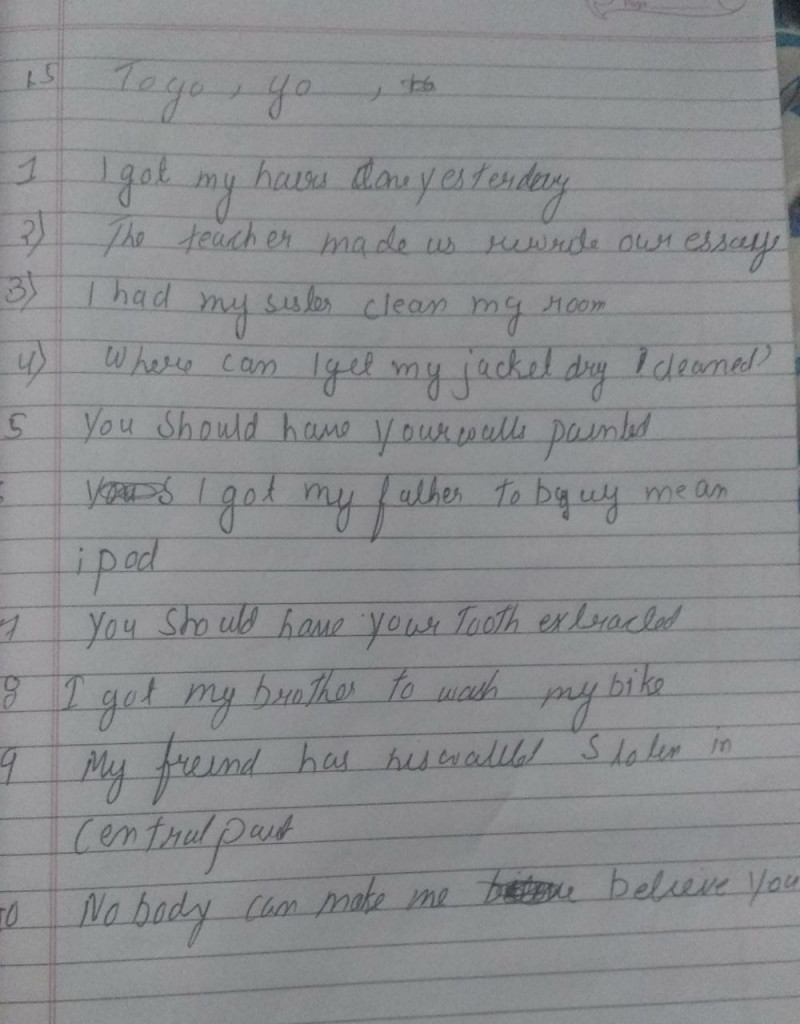 15 To go, yo,
1 I got my hairs done yesterday
2) The teacher made us rewrite our essays
3) I had my sister clean my room
4) Where can I get my jacket dry (cleaned)
5 You should have your walls painted
I got my father to buy me an
ipod
7 You should have your tooth extracted
8 I got my brother to wash my bike
9 My freind has his wallet stolen in
Central
10 Nobody can make me believe you